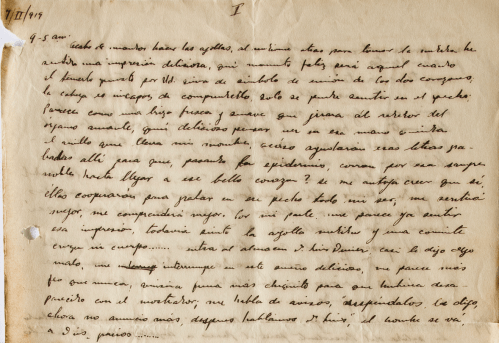 7/II/919
I
9-5 am
Acabo de mandar hacer las agollas, al mismo para tomar la medida, he
sentido una impresión deliciosa, qué momento feliz será aquel cuando
el por Vd. sirva de símbolo de unión de los dos corazones,
la cabeza es incapaz de comprenderlo, solo se puede sentir en el pecho
Parece como una brisa fresca y suave que girara al rededor del
órgano amante, qué delicioso pensar, ver en esa mano querida
el anillo que lleva mi nombre, acaso ayudarán esas letras gra-
badas allí para que, pasando la epidermis, corran por esa sangre
noble hasta llegar a ese bello corazón? se me antoja creer que sí,
ellas cooperarán para grabar en ese pecho todo mi ser, me sentirá
mejor, me comprenderá mejor. Por mi parte me parece ya sentir
esa impresión, todavía siento la agolla y una corriente
cruza mi cuerpo....... entra al almacen D. Luis casi le digo algo
malo, me interrumpe en este sueño delicioso, me parece más
feo que nunca, quisiera fuera más chiquito para que hubiera desa-
parecido con el mostrador, me habla de avisos, le digo,
ahora no anuncio más, despues hablamos D. Luis, el hombre se va,
a Dios, gracias.......